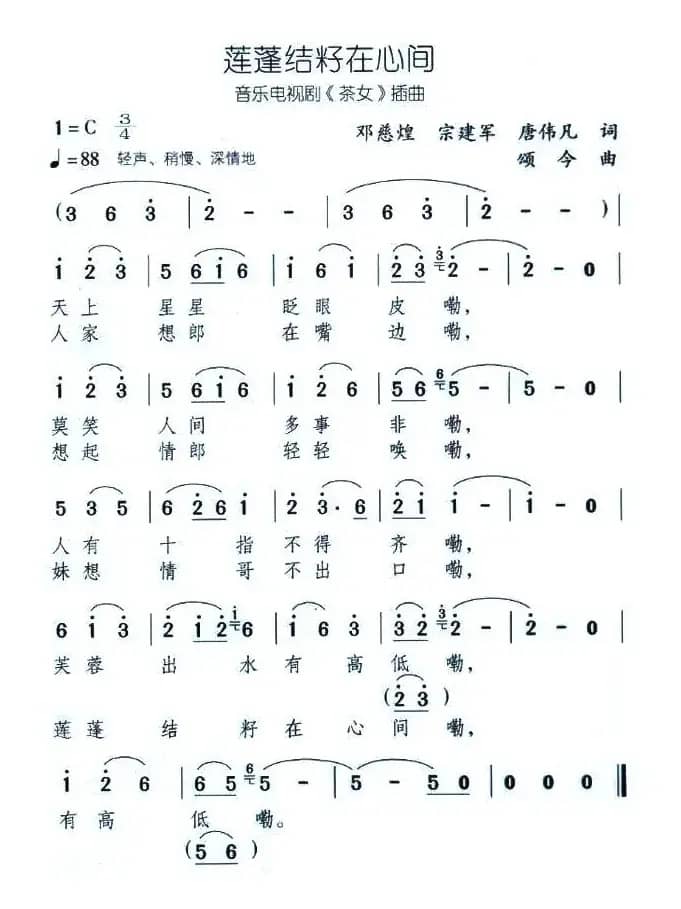 莲蓬结籽在心间
音乐电视剧《茶女》插曲
1=C 3/4 邓慈煌 宗建军 唐伟凡 词
♩=88 轻声、稍慢、深情地 颂今 曲
(3 6 3̇ | 2̇ - - | 3 6 3̇ | 2̇ - - ) |
1̇ 2̇ 3̇ | 5 6 1̇ 6 | 1̇ 6 1̇ | 2̇ 3̇ 3̇ 2̇ - | 2̇ - 0 |
天上 星星 眨眼 皮 嘞,
人家 想郎 在嘴 边 嘞,
1̇ 2̇ 3̇ | 5 6 1̇ 6 | 1̇ 2̇ 6 | 5 6 6 5 - | 5 - 0 |
莫笑 人间 多事 非 嘞,
想起 情郎 轻轻 唤 嘞,
5 3 5 | 6 2̇ 6 1̇ | 2̇ 3̇· 6 | 2̇ 1̇ 1̇ - | 1̇ - 0 |
人有 十指 不得 齐 嘞,
妹想 情哥 不出 口 嘞,
6 1̇ 3̇ | 2̇ 1̇ 2̇ 1̇ 6 | 1̇ 6 3̇ | 3̇ 2̇ 3̇ 2̇ - | 2̇ - 0 |
芙蓉 出水 有高 低 嘞,
(2̇ 3̇)
莲蓬 结籽 在心 间 嘞,
1̇ 2̇ 6 | 6 5 6 5 - | 5 - 5 0 | 0 0 0 ‖
有高 低 嘞。
(5 6)